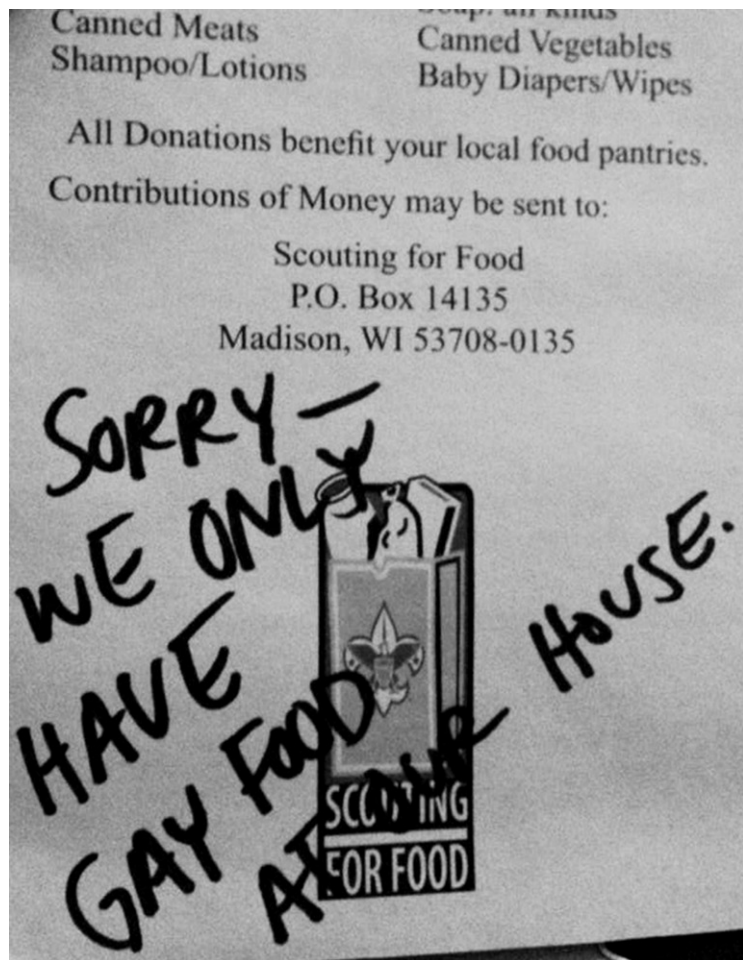 Soap: all kinds
Canned Meats
Canned Vegetables
Shampoo/Lotions
Baby Diapers/Wipes
All Donations benefit your local food pantries.
Contributions of Money may be sent to:
Scouting for Food
P.O. Box 14135
Madison, WI 53708-0135
SORRY—
WE ONLY
HAVE
GAY FOOD
AT OUR HOUSE.
SCOUTING
FOR FOOD